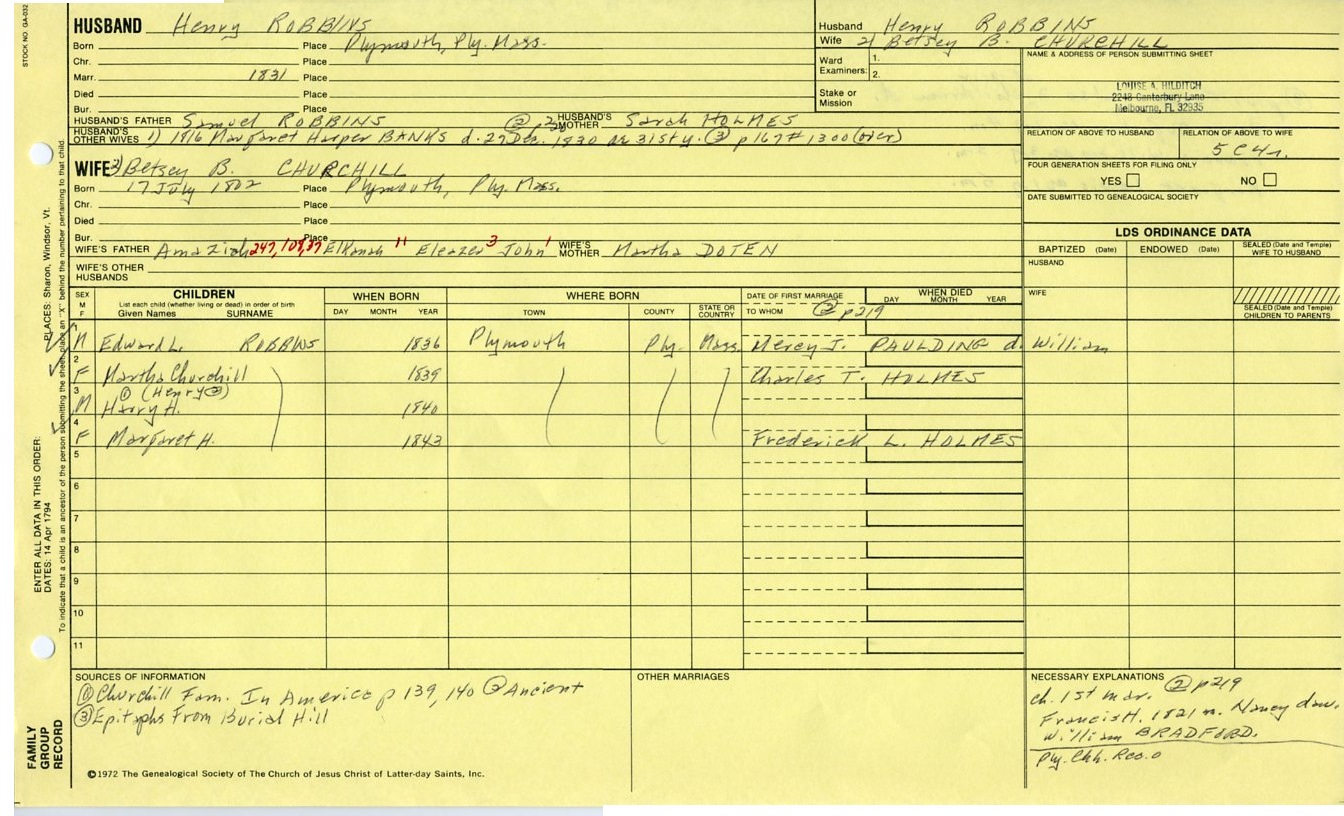 STOCK NO. GA-032
HUSBAND Henry ROBBINS
Born Place Plymouth, Ply. Mass.
Chr. Place
Marr. 1831 Place
Died Place
Bur. Place
HUSBAND'S FATHER Samuel ROBBINS ② HUSBAND'S MOTHER Sarah HOLMES
HUSBAND'S OTHER WIVES 1) 1816 Margaret Harper BANKS d. 27 Dec. 1830 ae 31st y. ③ p 167 # 1300 (over)
Husband Henry ROBBINS
Wife 2) Betsey B. CHURCHILL
Ward Examiners: 1.
2.
Stake or Mission
NAME & ADDRESS OF PERSON SUBMITTING SHEET
LOUISE A. HILDITCH
2248 Canterbury Lane
Melbourne, FL 32935
RELATION OF ABOVE TO HUSBAND
RELATION OF ABOVE TO WIFE
5C4r.
FOUR GENERATION SHEETS FOR FILING ONLY
YES NO
DATE SUBMITTED TO GENEALOGICAL SOCIETY
WIFE 2) Betsey B. CHURCHILL
Born 17 July 1802 Place Plymouth, Ply. Mass.
Chr. Place
Died Place
Bur. Place
WIFE'S FATHER Amaziah 247, 107, 37 Elkanah 11 Eleazer 3 John 1 WIFE'S MOTHER Martha DOTEN
WIFE'S OTHER HUSBANDS
LDS ORDINANCE DATA
BAPTIZED (Date) ENDOWED (Date) SEALED (Date and Temple) WIFE TO HUSBAND
HUSBAND
WIFE
SEALED (Date and Temple) CHILDREN TO PARENTS
SEX M F
CHILDREN
List each child (whether living or dead) in order of birth
Given Names SURNAME
WHEN BORN
DAY MONTH YEAR
WHERE BORN
TOWN COUNTY STATE OR COUNTRY
DATE OF FIRST MARRIAGE
TO WHOM ② p219
WHEN DIED
DAY MONTH YEAR
1 M Edward L. ROBBINS 1836 Plymouth Ply. Mass. Mercy J. PAULDING d. William
2 F Martha Churchill 1839 Charles T. HOLMES
3 M ① (Henry ②)
Harry H. 1840
4 F Margaret H. 1843 Frederick L. HOLMES
5
6
7
8
9
10
11
SOURCES OF INFORMATION
① Churchill Fam. In America p 139, 140 ② Ancient
③ Epitaphs From Burial Hill
OTHER MARRIAGES
NECESSARY EXPLANATIONS ② p219
ch. 1st mar.
Francis H. 1821 m. Nancy dau.
William BRADFORD.
Ply. Chh. Rec.
©1972 The Genealogical Society of The Church of Jesus Christ of Latter-day Saints, Inc.
FAMILY GROUP RECORD
ENTER ALL DATA IN THIS ORDER:
DATES: 14 Apr 1794
PLACES: Sharon, Windsor, Vt.
To indicate that a child is an ancestor of the person submitting the sheet, place an "X" behind the number pertaining to that child.